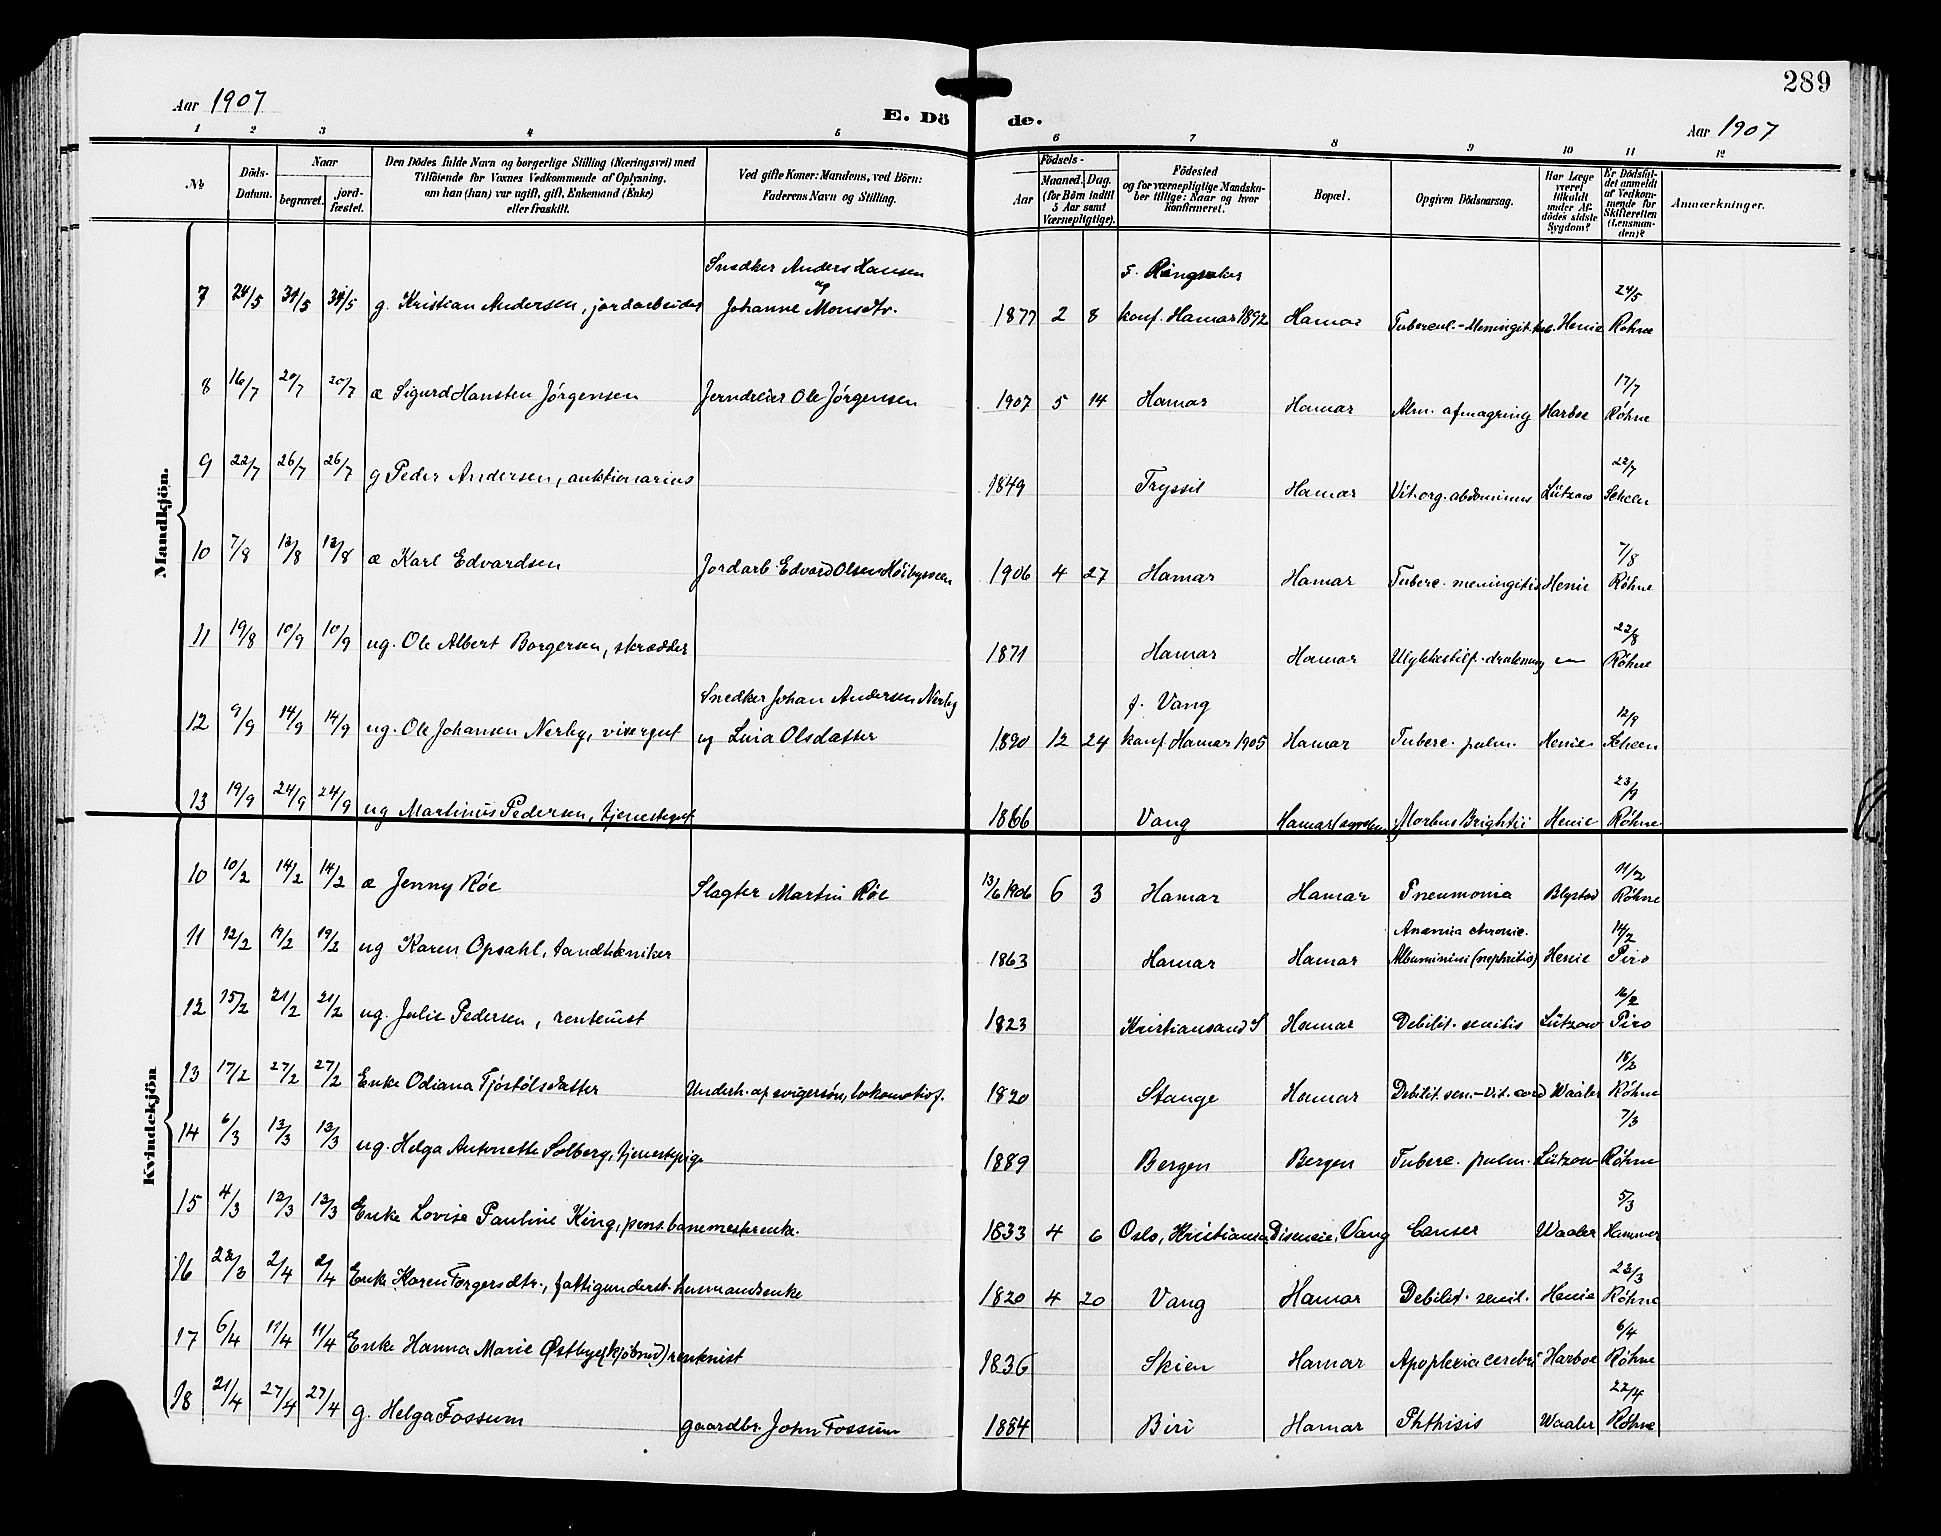 289
Aar 1907
E. Dö de.
Aar 1907
1 2 3 4 5 6 7 8 9 10 11 12
No
Döds-Datum.
Naar
begravet.
jordfæstet.
Den Dödes fulde Navn og borgerlige Stilling (Næringsvei) med
Tilföiende for Voxnes Vedkommende af Oplysning,
om han (hun) var ugift, gift, Enkemand (Enke)
eller fraskilt.
Ved gifte Koner: Mandens, ved Börn:
Faderens Navn og Stilling.
Födsels-
Aar
Maaned. Dag.
(for Börn indtil
5 Aar samt
Værnepligtige).
Födested
og for værnepligtige Mandskaber tillige: Naar og hvor
konfirmeret.
Bopæl.
Opgiven Dödsaarsag.
Har Læge
været
tilkaldt
under Afdödes sidste
Sygdom?
Er Dödsfaldet anmeldt
af Vedkommende for
Skifteretten
(Lensmanden)?
Anmærkninger.
Mandkjön.
Snedker Anders Hansen
og
f. Ringsaker
24/5
7 24/5 31/5 31/5 g. Kristian Andersen, jordarbeider Johanne Monsdtr. 1877 2 8 konf. Hamar 1892 Hamar Tubercul.-Meningit. Henie Røhne
17/7
8 16/7 20/7 20/7 æ Sigurd Hansten Jørgensen Jerndreier Ole Jørgensen 1907 5 14 Hamar Hamar Alm. afmagring Harboe Røhne
22/7
9 22/7 26/7 26/7 g Peder Andersen, auktionarius 1849 Tryssil Hamar Vit. org. abdominus Lützow Scheen
7/8
10 7/8 12/8 12/8 æ Karl Edvardsen Jordarb Edvard Olsen Høibyseen 1906 4 27 Hamar Hamar Tuberc. meningitis Henie Røhne
22/8
11 19/8 10/9 10/9 ug. Ole Albert Borgersen, skrædder 1871 Hamar Hamar Ulykkestilf. drukning — Røhne
Snedker Johan Andersen Nerby
f. Vang
12/9
12 9/9 14/9 14/9 ug. Ole Johansen Nerby, visergut og Lina Olsdatter 1890 12 24 konf. Hamar 1905 Hamar Tuberc. pulm. Henie Scheen
23/9
13 19/9 24/9 24/9 ug Martinus Pedersen, tjenestegut 1866 Vang Hamar Morbus Brightii Henie Røhne
Kvindekjön
11/2
10 10/2 14/2 14/2 æ Jenny Røe Slagter Martin Røe 13/6 1906 6 3 Hamar Hamar Pneumonia Blystad Røhne
Anæmia chronic.
14/2
11 12/2 19/2 19/2 ug Karen Opsahl, tandtekniker 1863 Hamar Hamar Albuminini (nephritis) Henie Piro
16/2
12 15/2 21/2 21/2 ug. Julie Pedersen, rentenist 1823 Kristiansand S Hamar Debilit. senilis Lützow Piro
18/2
13 17/2 27/2 27/2 Enke Odiana Tjøstølsdatter Underh. af svigersøn, lokomotivf. 1820 Stange Hamar Debilit. sen.-Vit. cord Waaler Røhne
7/3
14 6/3 13/3 13/3 ug. Helga Antonette Solberg, tjenestepige 1889 Bergen Bergen Tuberc. pulm. Lützow Røhne
5/3
15 4/3 12/3 12/3 Enke Lovise Pauline King, pens. banemesterenke. 1833 4 6 Oslo, Kristiania Disenvei, Vang Canser Waaler Hammer
23/3
16 22/3 2/4 2/4 Enke Karen Torgersdtr., fattigunderst. husmandsenke 1820 4 20 Vang Hamar Debilit. senil. Henie Røhne
6/4
17 6/4 11/4 11/4 Enke Hanna Marie Østbye (kjøbmd) rentenist 1836 Skien Hamar Apoplexia cerebri Harboe Røhne
22/4
18 21/4 27/4 27/4 g. Helga Fossum gaardbr. John Fossum 1884 Biri Hamar Phthisis Waaler Røhne